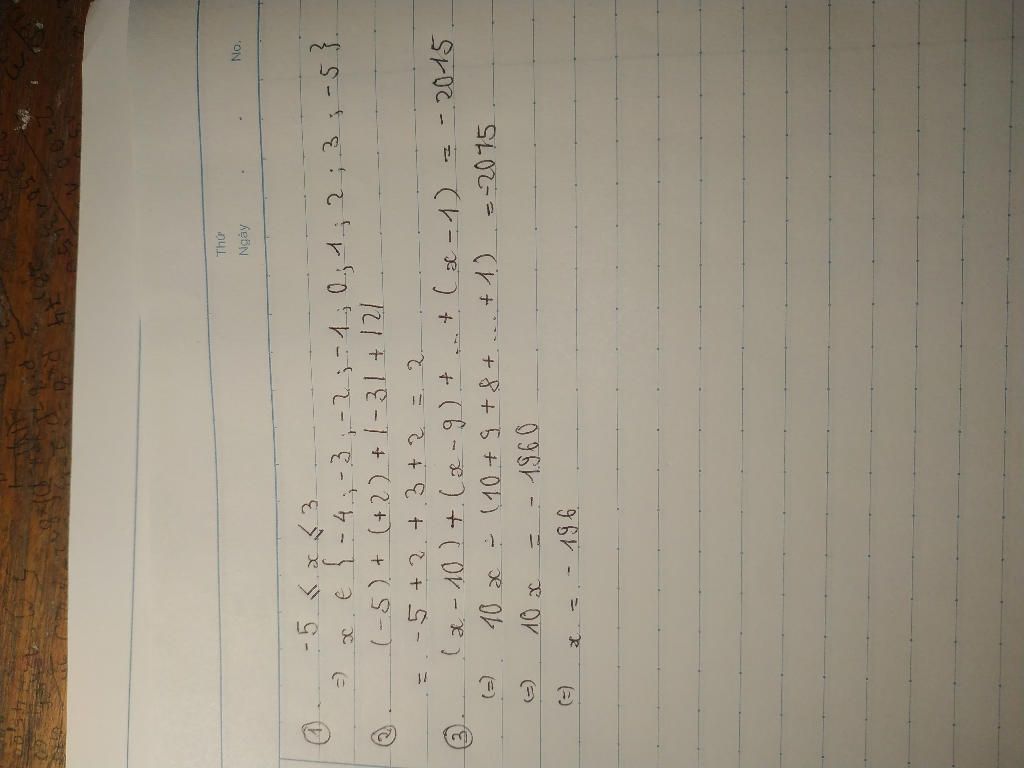 Thứ
Ngày
No.
① -5 ≤ x ≤ 3
=) x ∈ {-4; -3; -2; -1; 0; 1; 2; 3; -5}
② (-5) + (+2) + |-3| + |2|
= -5 + 2 + 3 + 2 = 2
③ (x-10) + (x-9) + ... + (x-1) = -2015
(=) 10x - (10+9+8+...+1) = -2015
(=) 10x = -1960
(=) x = -196